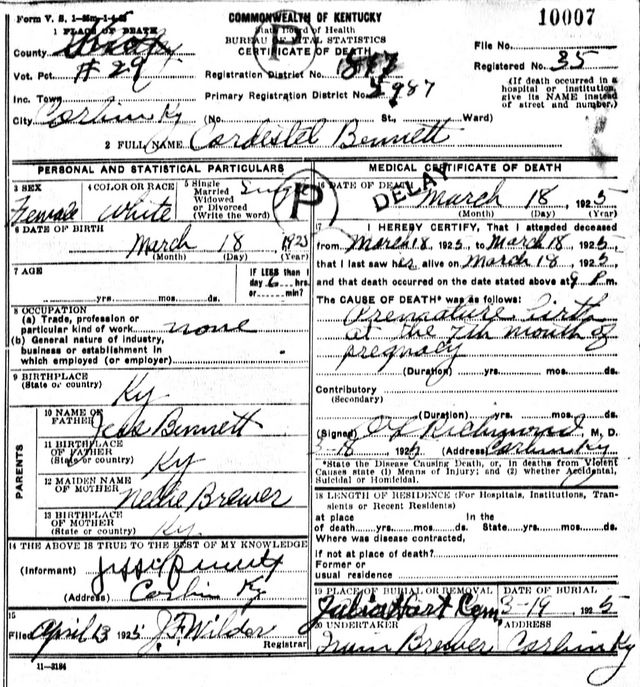 Form V. S. 1-25m-1-4-25
COMMONWEALTH OF KENTUCKY
State Board of Health
BUREAU OF VITAL STATISTICS
CERTIFICATE OF DEATH
10007
1 PLACE OF DEATH
County
Vot. Pct. #29
Inc. Town
City Corbin Ky
Registration District No.
Primary Registration District No. 5987
(No. St., Ward)
File No.
Registered No. 35
(If death occurred in a hospital or institution, give its NAME instead of street and number.)
2 FULL NAME Bennett
P
PERSONAL AND STATISTICAL PARTICULARS
3 SEX
Female
4 COLOR OR RACE
White
5 Single Married Widowed or Divorced (Write the word)
Single
6 DATE OF BIRTH
March 18 1925
(Month) (Day) (Year)
7 AGE
yrs. mos. ds.
IF LESS than 1 day 6 hrs. or min?
8 OCCUPATION
(a) Trade, profession or particular kind of work none
(b) General nature of industry, business or establishment in which employed (or employer)
9 BIRTHPLACE
(State or country) Ky
PARENTS
10 NAME OF FATHER Jess Bennett
11 BIRTHPLACE OF FATHER (State or country) Ky
12 MAIDEN NAME OF MOTHER Nellie Brewer
13 BIRTHPLACE OF MOTHER (State or country) Ky.
14 THE ABOVE IS TRUE TO THE BEST OF MY KNOWLEDGE
(Informant)
(Address) Corbin Ky
15
Filed April 3 1925 J. F. Wilder
Registrar
11-3184
MEDICAL CERTIFICATE OF DEATH
DELAY
P
16 DATE OF DEATH March 18, 1925
(Month) (Day) (Year)
17 I HEREBY CERTIFY, That I attended deceased
from March 18 1925, to March 18 1925,
that I last saw her alive on March 18, 1925,
and that death occurred on the date stated above at 9 P.m.
The CAUSE OF DEATH* was as follows:
Premature birth
at the 7th month of
pregnacy
(Duration) yrs. mos. ds.
Contributory
(Secondary)
(Duration) yrs. mos. ds.
(Signed) Richmond M. D.
3-18 192 (Address) Corbin Ky
*State the Disease Causing Death, or, in deaths from Violent Causes state (1) Means of Injury; and (2) whether Accidental, Suicidal or Homicidal.
18 LENGTH OF RESIDENCE (For Hospitals, Institutions, Transients or Recent Residents)
at place of death yrs. mos. ds. In the State yrs. mos. ds.
Where was disease contracted,
if not at place of death?
Former or
usual residence
19 PLACE OF BURIAL OR REMOVAL
Julia Hart Cem.
DATE OF BURIAL
3-19 1925
20 UNDERTAKER
Brewer
ADDRESS
Corbin Ky